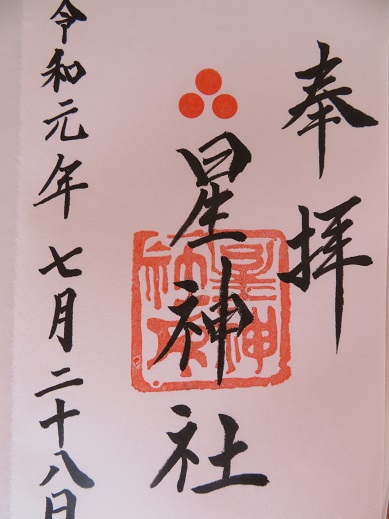 奉拝
星神社
令和元年七月二十八日